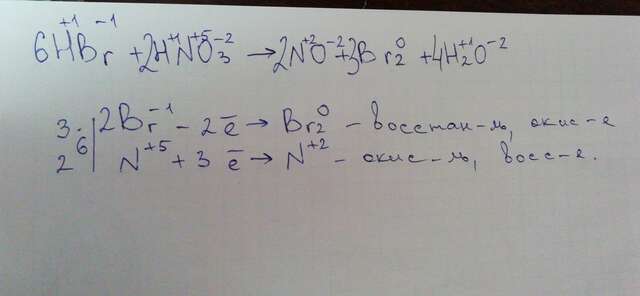 6H⁺¹Br⁻¹ + 2H⁺¹N⁺⁵O₃⁻² → 2N⁺²O⁻² + 3Br₂⁰ + 4H₂⁺¹O⁻²
3 · 6 | 2Br⁻¹ - 2ē → Br₂⁰ - восстан-ль, окис-е
2 | N⁺⁵ + 3ē → N⁺² - окис-ль, восс-е.